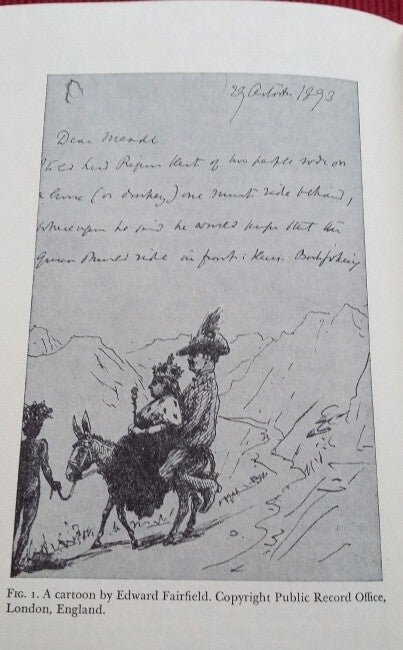 29 October 1893
Dear Meade
told that if two people rode on
a horse (or donkey) one must ride behind,
whereupon he said he would that the
Queen should ride in front:
FIG. 1. A cartoon by Edward Fairfield. Copyright Public Record Office,
London, England.